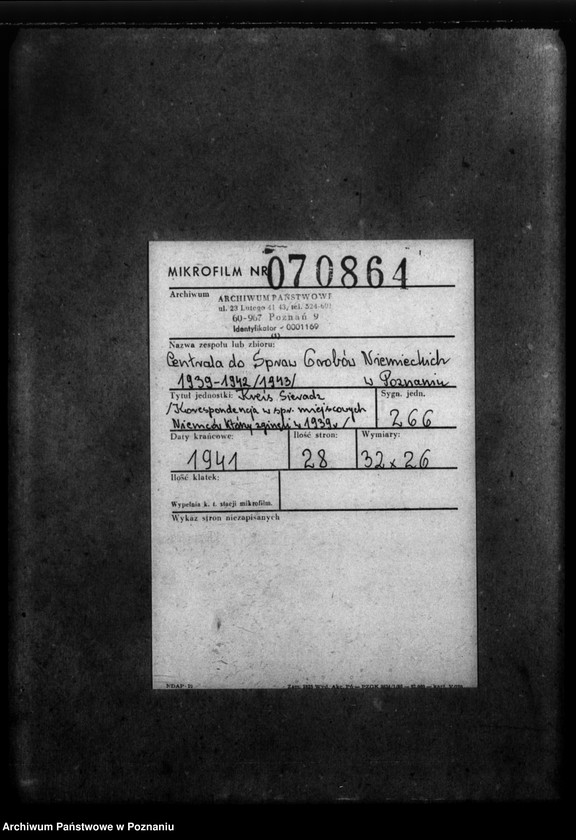 MIKROFILM NR 070864
Archiwum
ARCHIWUM PAŃSTWOWE
ul. 23 Lutego 41/43, tel. 524-601
60-967 Poznań 9
Identyfikator - 0001169
Nazwa zespołu lub zbioru:
Centrala do Spraw Grobów Niemieckich
1939-1942/1943/ w Poznaniu
Tytuł jednostki: Kreis Sieradz
/Korespondencja w spr. miejscowych
Niemców którzy zginęli w 1939r/
Sygn. jedn.
266
Daty krańcowe:
1941
Ilość stron:
28
Wymiary:
32x26
Ilość klatek:
Wypełnia k. t. stacji mikrofilm.
Wykaz stron niezapisanych
Archiwum Państwowe w Poznaniu